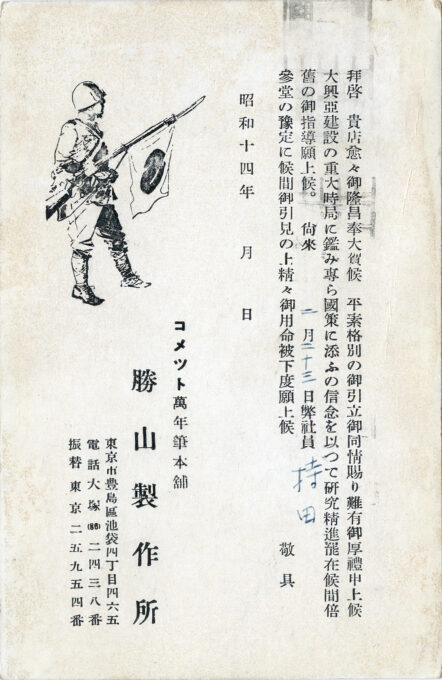 拜啓　貴店愈々御隆昌奉大賀候　平素格別の御引立御同情賜り難有御厚禮申上候
大興亞建設の重大時局に鑑み專ら國策に添ふの信念を以つて研究精進罷在候間倍
舊の御指導願上候。　尙來　二月二十三日弊社員　持田　敬具
參堂の豫定に候間御引見の上精々御用命被下度願上候
昭和十四年　月　日
コメツト萬年筆本舖
勝山製作所
東京市豊島區池袋四丁目四六五
電話大塚(86)二四三八番
振替東京二五九五四番